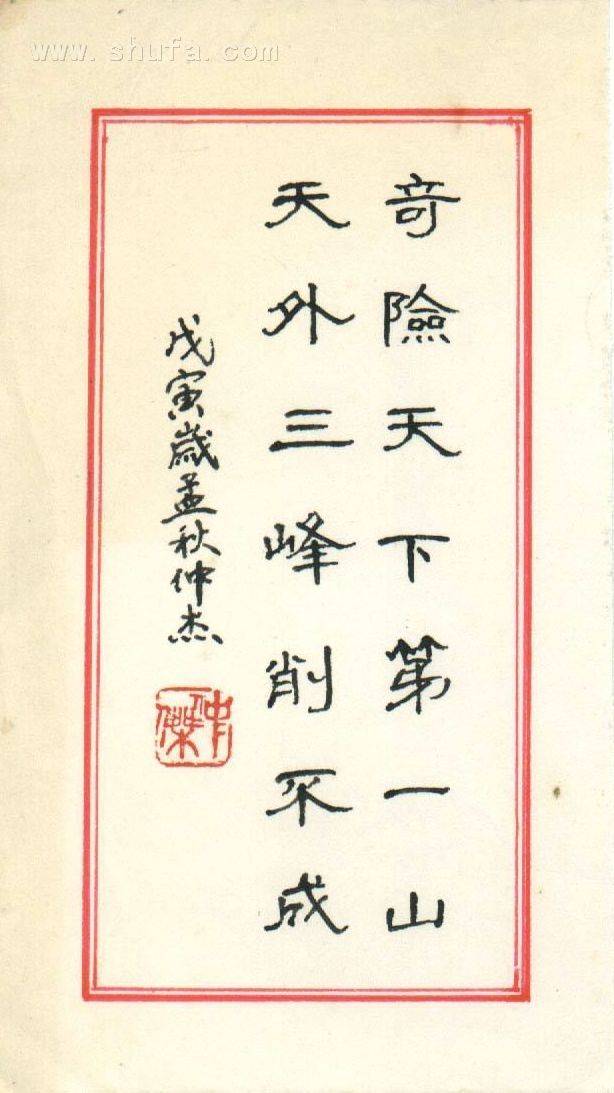 www.shufa.com
奇險天下第一山
天外三峰削不成
戊寅歲孟秋仲杰
仲傑